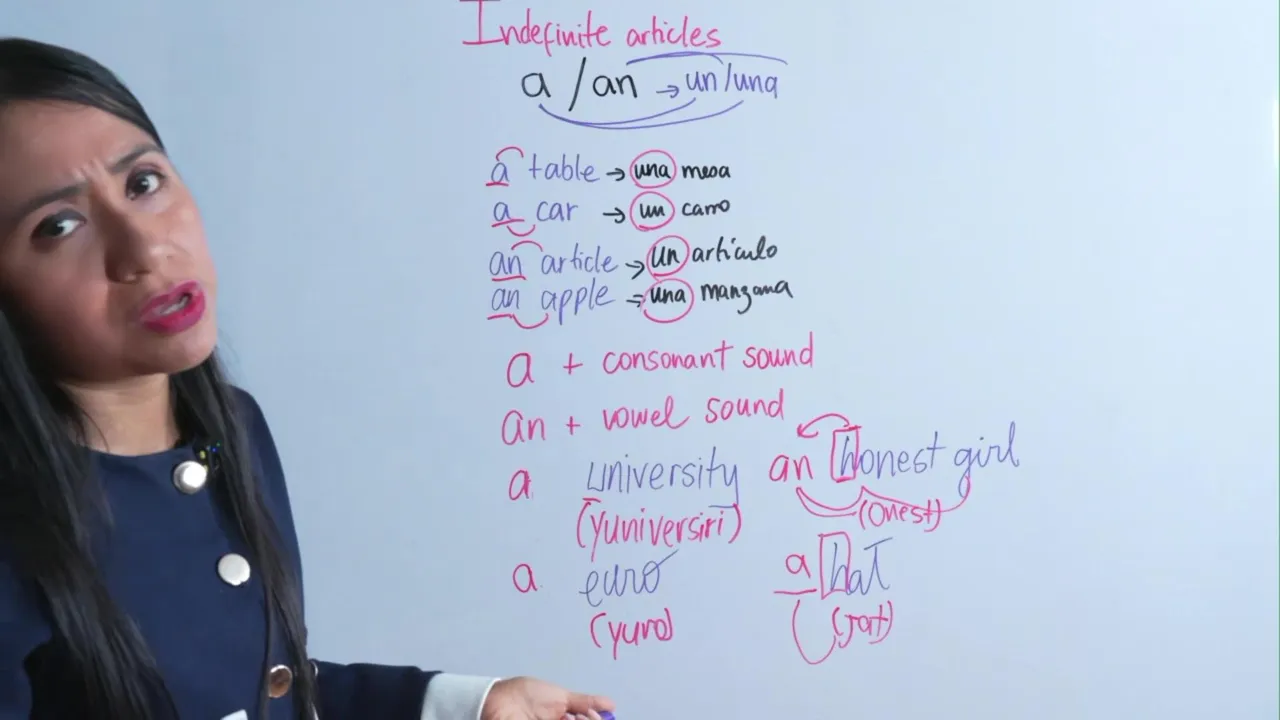 Indefinite articles
a / an → un/una
a table → una mesa
a car → un carro
an article → un artículo
an apple → una manzana
a + consonant sound
an + vowel sound
a university
(yuniversiri)
a euro
(yuro)
an honest girl
(onest)
a hat
(jat)